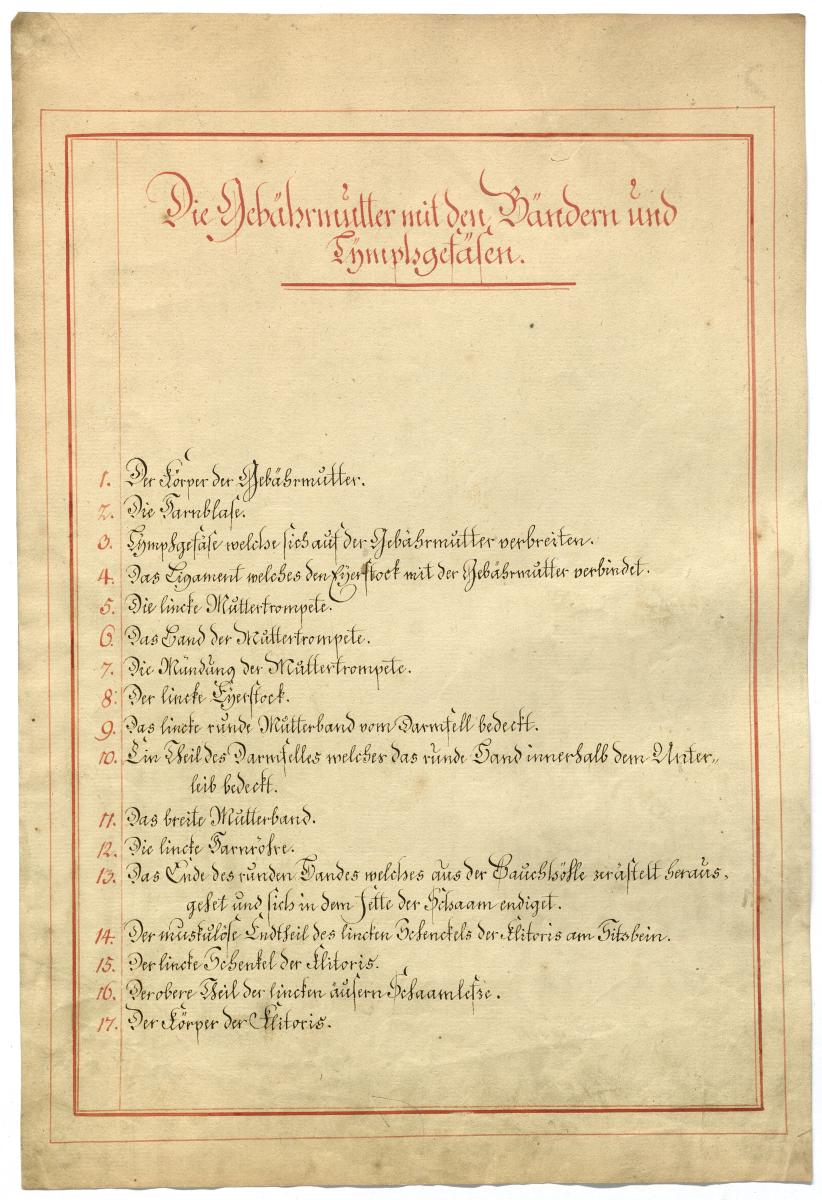 Die Gebährmutter mit den Bändern und
Lÿmphgefäsen.
1. Der Körper der Gebährmutter.
2. Die Harnblase.
3. Lÿmphgefäse welche sich auf der Gebährmutter verbreiten.
4. Das Ligament welches den Eÿerstock mit der Gebährmutter verbindet.
5. Die lincke Muttertrompete.
6. Das Band der Muttertrompete.
7. Die Mündung der Muttertrompete.
8. Der lincke Eÿerstock.
9. Das lincke runde Mutterband vom Darmfell bedeckt.
10. Ein Theil des Darmfelles welches das runde Band innerhalb dem Unter„
leib bedeckt.
11. Das breite Mutterband.
12. Die lincke Harnröhre.
13. Das Ende des runden Bandes welches aus der Bauchhöhle zerästelt heraus„
gehet und sich in dem Fette der Schaam endiget.
14. Der muskulöse Endtheil des lincken Schenckels der Klitoris am Sitsbein.
15. Der lincke Schenkel der Klitoris.
16. Der obere Theil der lincken äusern Schaamlefze.
17. Der Körper der Klitoris.